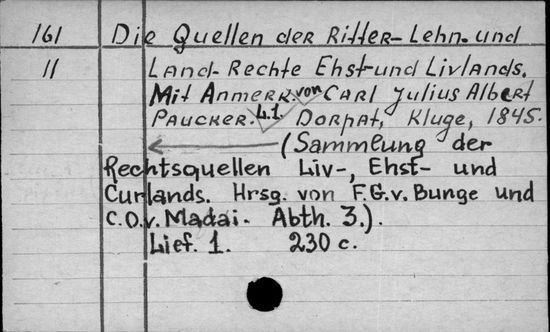 161 Die Quellen der Ritter- Lehn- und
11 Land- Rechte Ehst- und Livlands.
Mit Anmerk. von Carl Julius Albert
Paucker. L.1. Dorpat, Kluge, 1845.
(Sammlung der
Rechtsquellen Liv-, Ehst- und
Curlands. Hrsg. von F.G.v. Bunge und
C.O.v. Madai. Abth. 3.).
Lief. 1. 230 c.